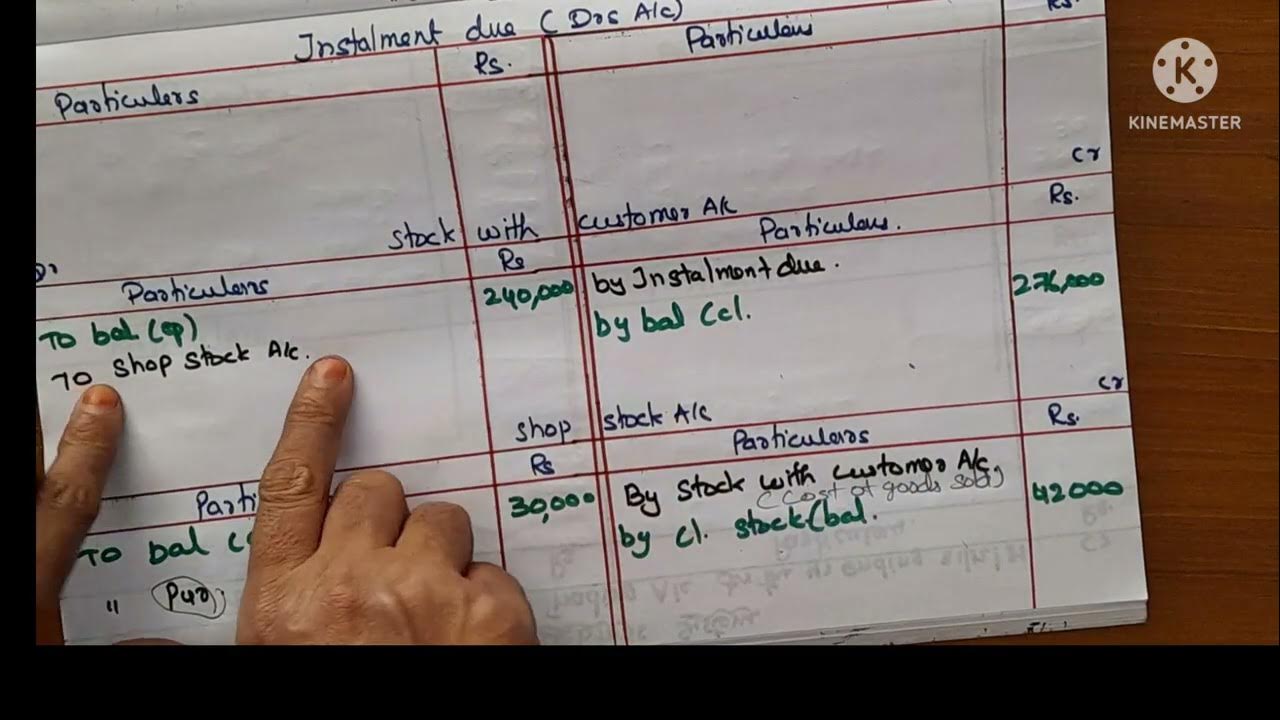 Instalment due (Drs A/c)
Particulers Rs. Particulars Rs.
Cr
stock with customer A/c
Particulers Rs Particulars. Rs.
To bal (op) 240,000 by Instalment due. 276,000
To shop stock A/c. by bal (cl.
Cr
shop stock A/c
Rs Particulers Rs.
To bal 30,000 By stock with customer A/c, 42000
(cost of goods sold)
by cl. stock (bal.
" Pur,
K
KINEMASTER